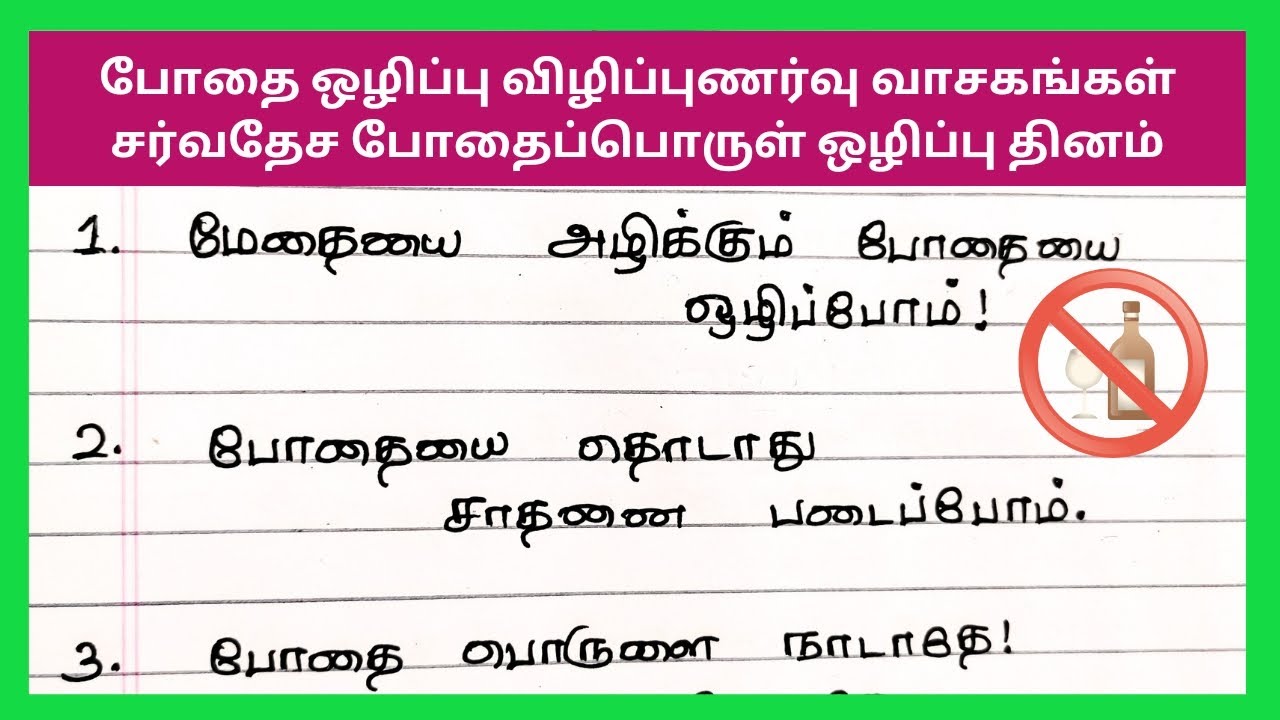 போதை ஒழிப்பு விழிப்புணர்வு வாசகங்கள்
சர்வதேச போதைப்பொருள் ஒழிப்பு தினம்
1. மேதையை அழிக்கும் போதையை
ஒழிப்போம்!
2. போதையை தொடாது
சாதணை படைப்போம்.
3. போதை பொருளை நாடாதே!